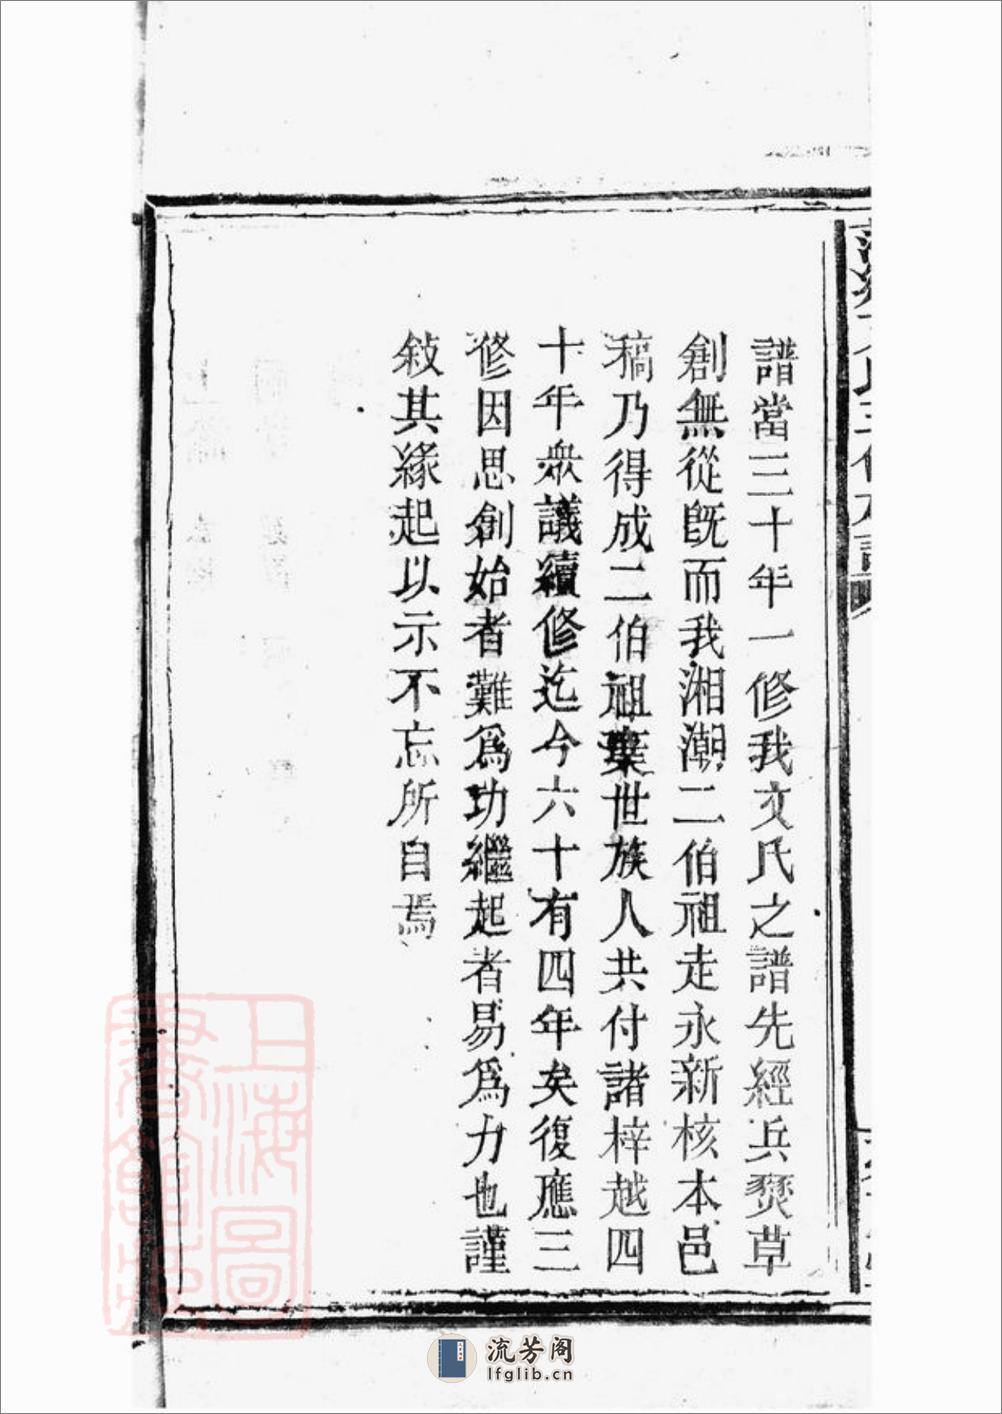 譜當三十年一修我文氏之譜先經兵燹草
創無從旣而我湘潮二伯祖走永新核本邑
稿乃得成二伯祖棄世族人共付諸梓越四
十年衆議續修迄今六十有四年矣復應三
修因思創始者難爲功繼起者易爲力也謹
敍其緣起以示不忘所自焉
上海圖
書館藏
流芳阁
lfglib.cn